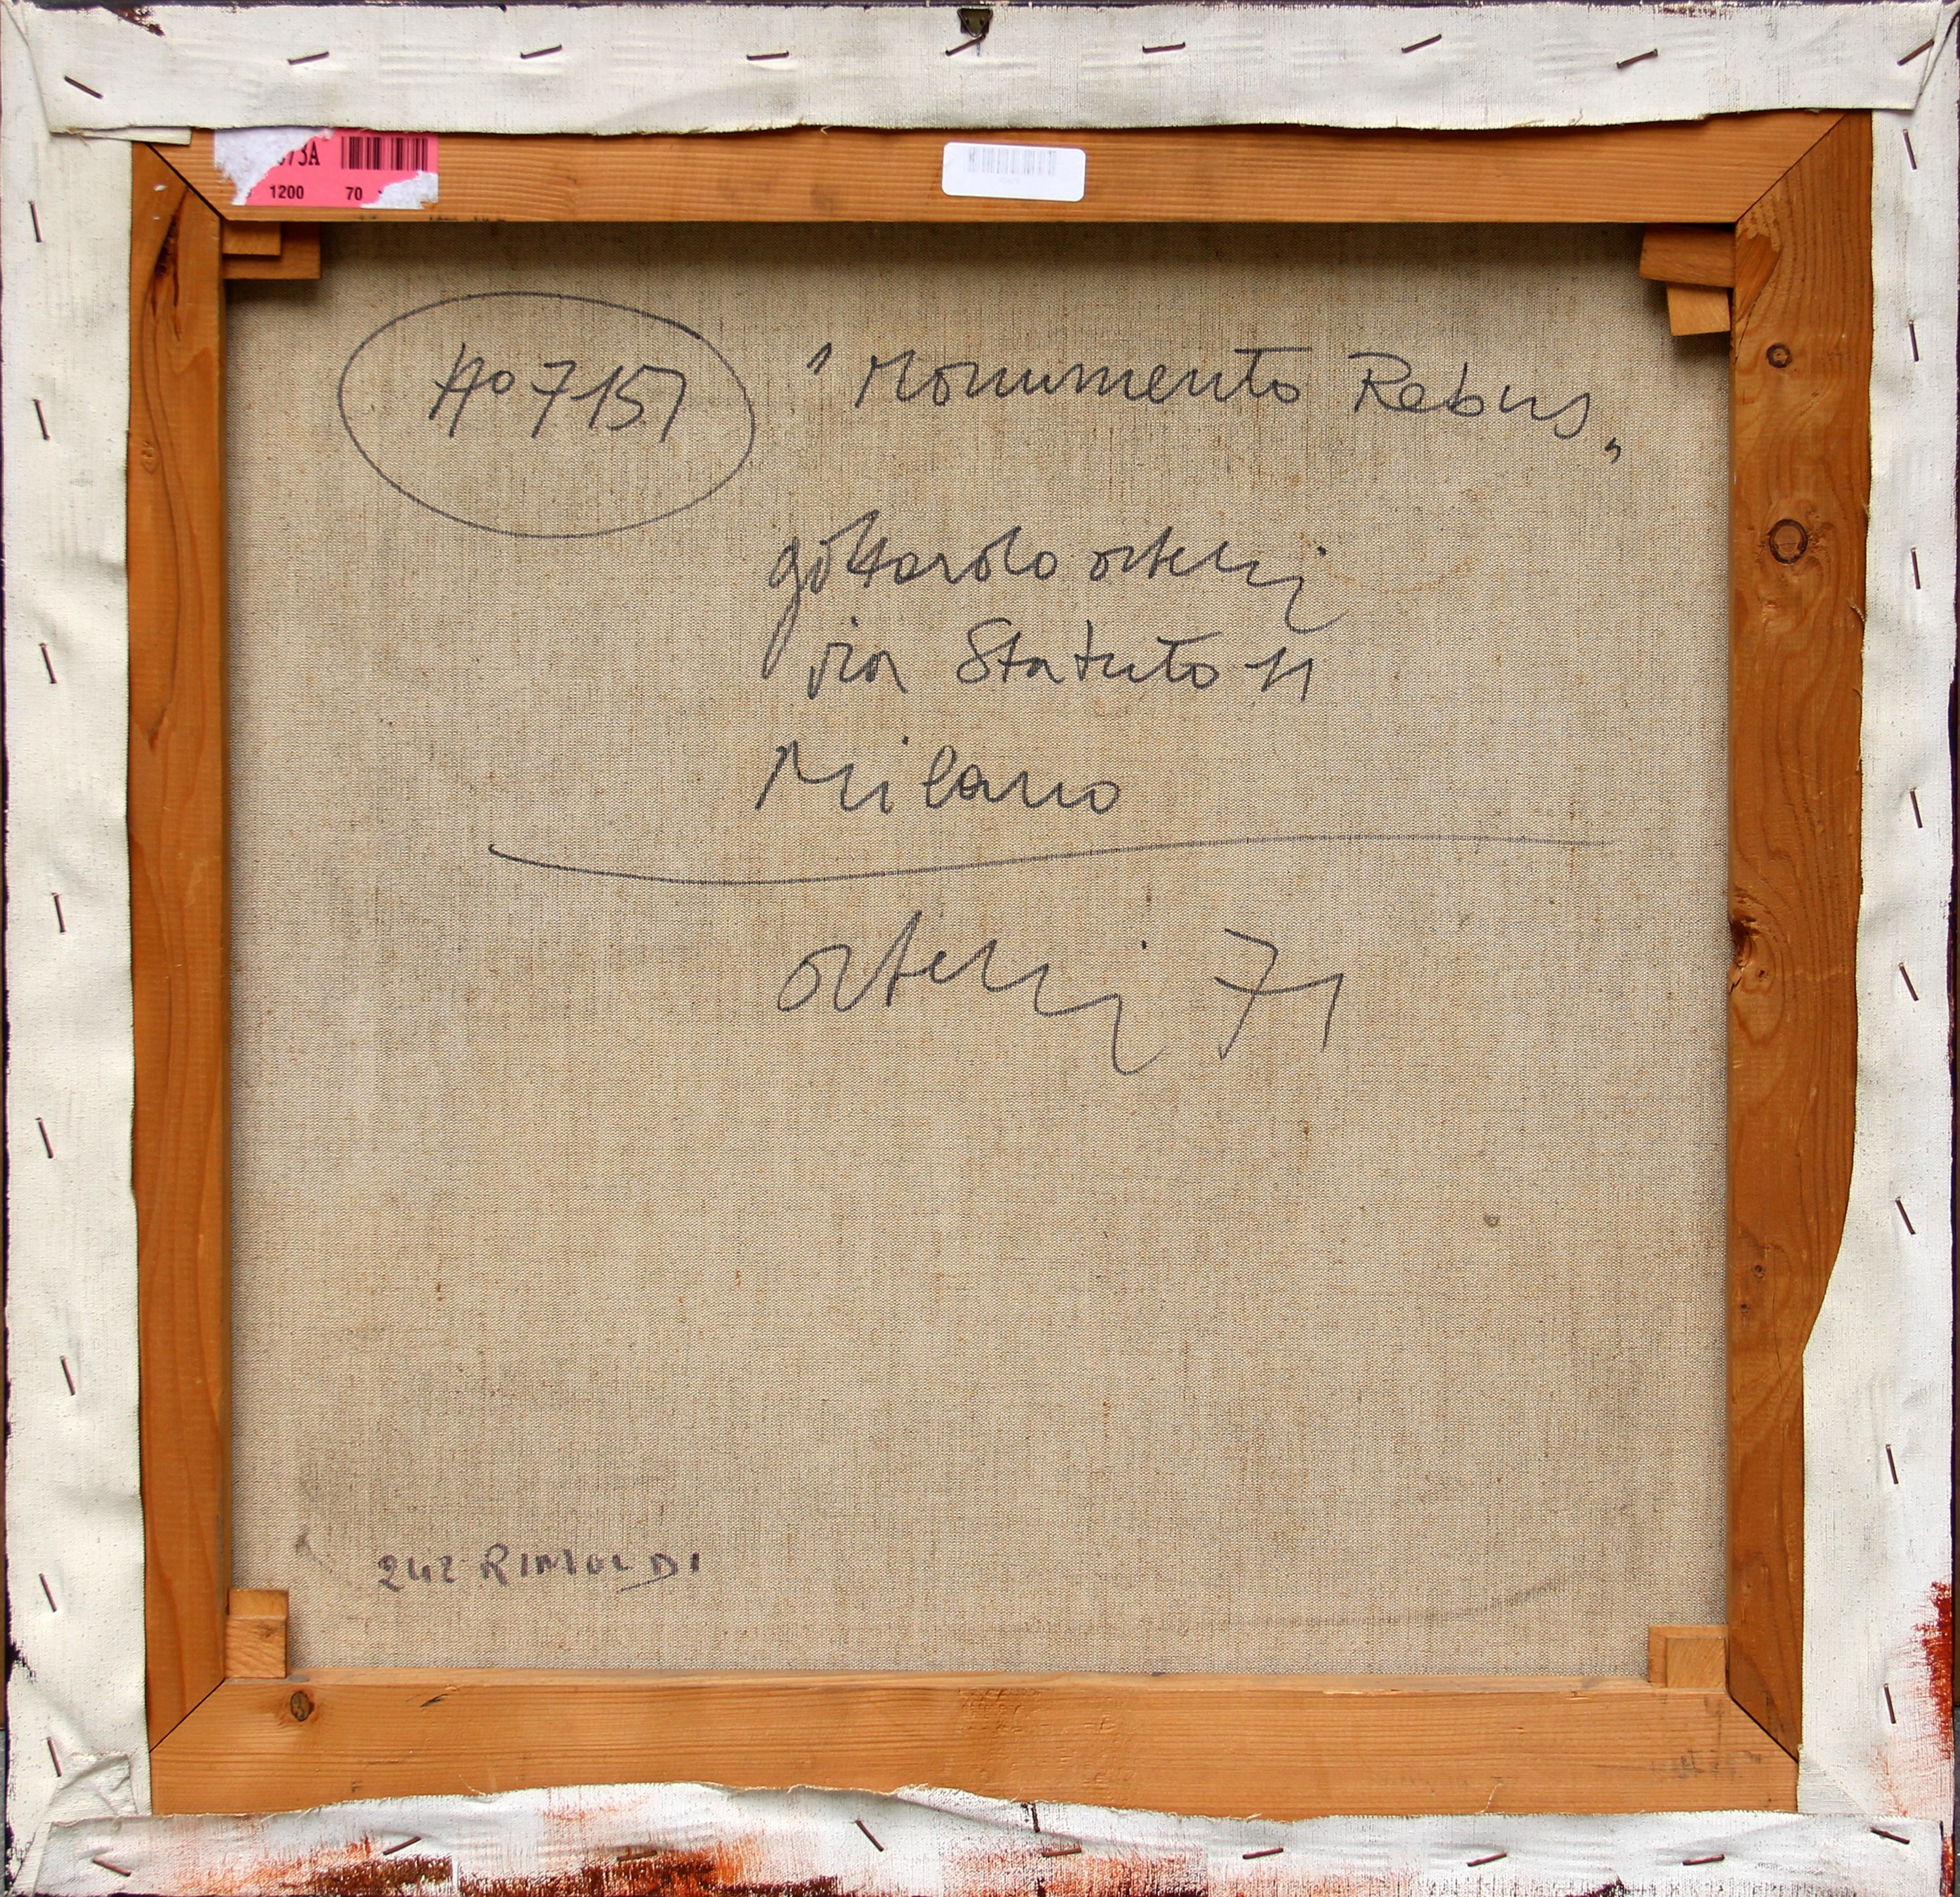 73A
1200 70
N° 7157 "Monumento Rebus"
gottardo ortelli
via Statuto 11
Milano
ortelli 71
242 RIMOLDI